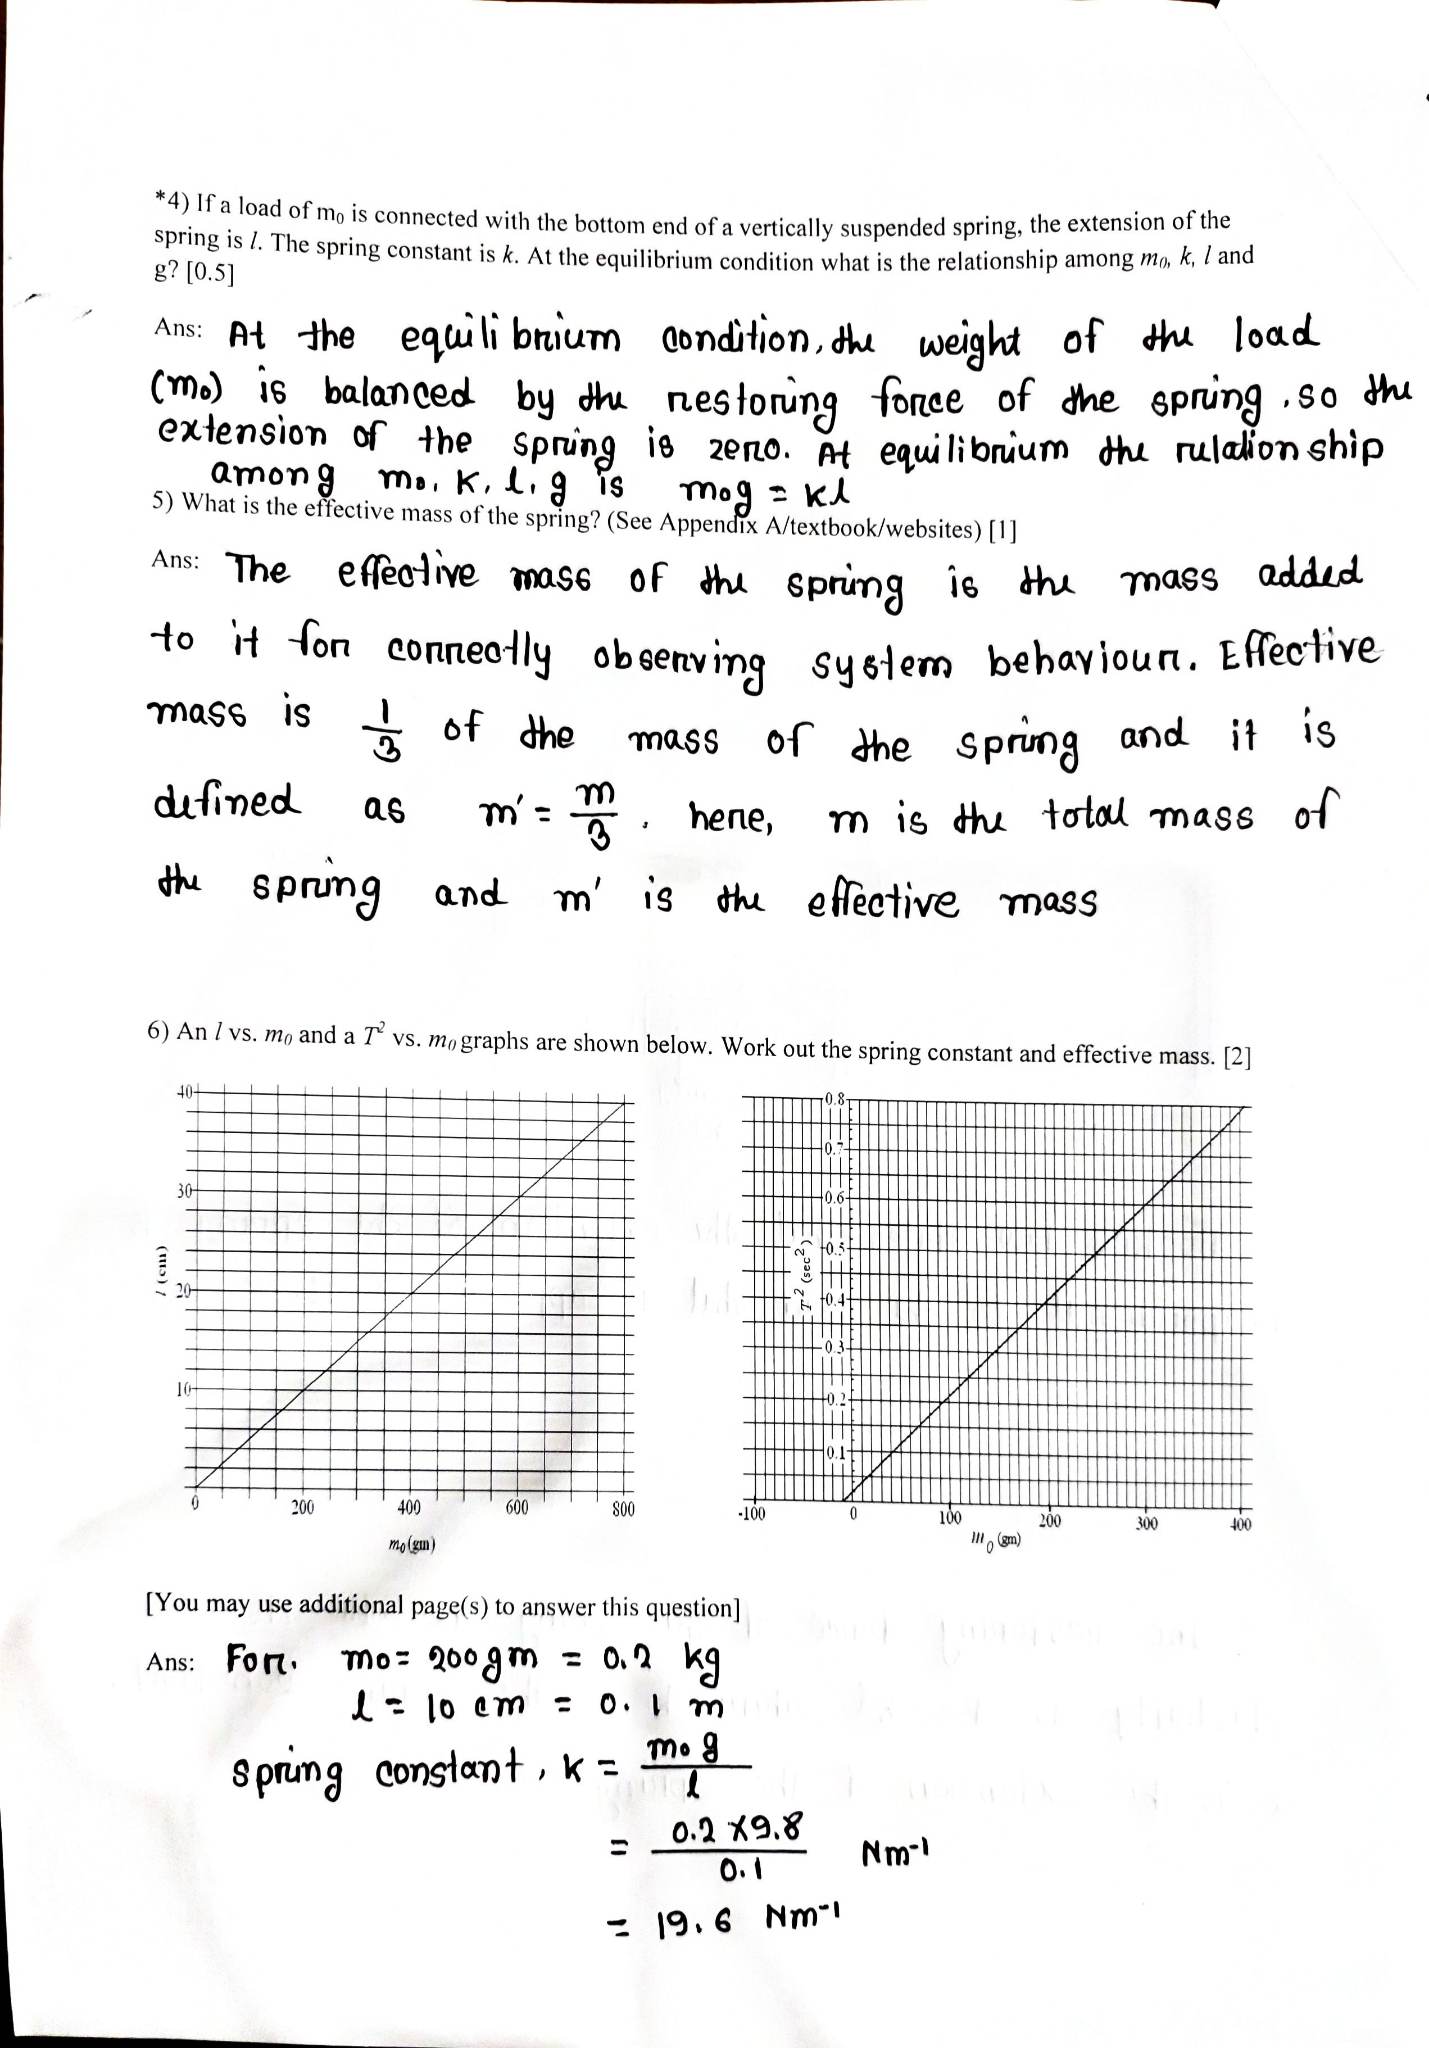 *4) If a load of m₀ is connected with the bottom end of a vertically suspended spring, the extension of the
spring is l. The spring constant is k. At the equilibrium condition what is the relationship among m₀, k, l and
g? [0.5]
Ans: At the equilibrium condition, the weight of the load
(m₀) is balanced by the restoring force of the spring, so the
extension of the spring is zero. At equilibrium the rulation ship
among m₀, k, l, g is m₀g = kl
5) What is the effective mass of the spring? (See Appendix A/textbook/websites) [1]
Ans: The effective mass of the spring is the mass added
to it for correctly observing system behaviour. Effective
mass is 1/3 of the mass of the spring and it is
defined as m' = m/3. here, m is the total mass of
the spring and m' is the effective mass
6) An l vs. m₀ and a T² vs. m₀ graphs are shown below. Work out the spring constant and effective mass. [2]
40
30
20
10
l (cm)
0 200 400 600 800
m₀(gm)
0.8
0.7
0.6
0.5
0.4
0.3
0.2
0.1
T² (sec²)
-100 0 100 200 300 400
m₀ (gm)
[You may use additional page(s) to answer this question]
Ans: For. m₀ = 200gm = 0.2 kg
l = 10 cm = 0.1 m
spring constant, k = m₀g/l
= 0.2 × 9.8/0.1 Nm⁻¹
= 19.6 Nm⁻¹